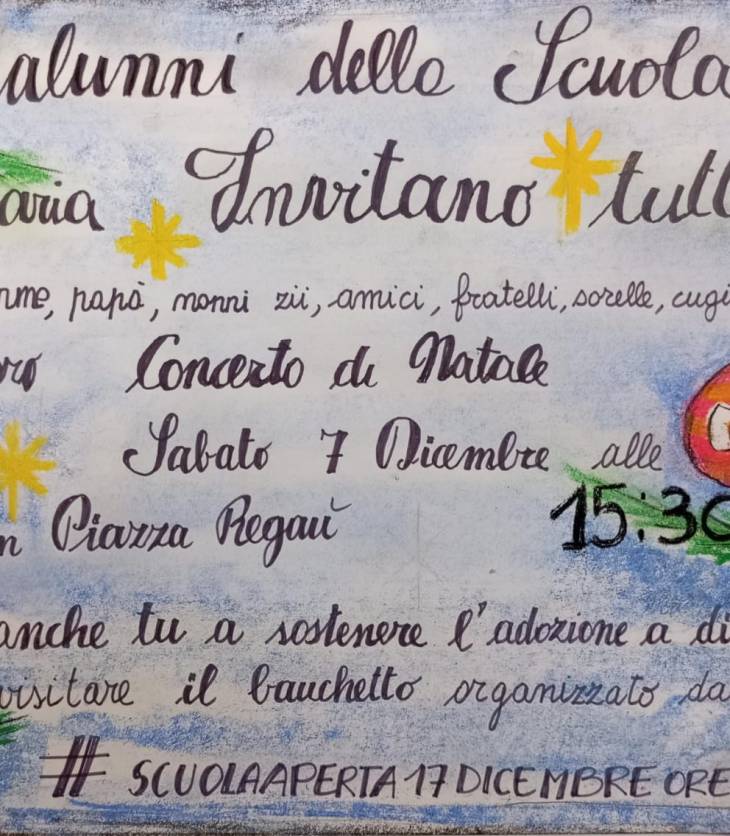 alunni della Scuola
aria Invitano tutt
mme, papà, nonni zii, amici, fratelli, sorelle, cugi
oro Concerto di Natale
Sabato 7 Dicembre alle
15:30
in Piazza Regaù
anche tu a sostenere l'adozione a di
visitare il banchetto organizzato da
# SCUOLAAPERTA 17 DICEMBRE ORE